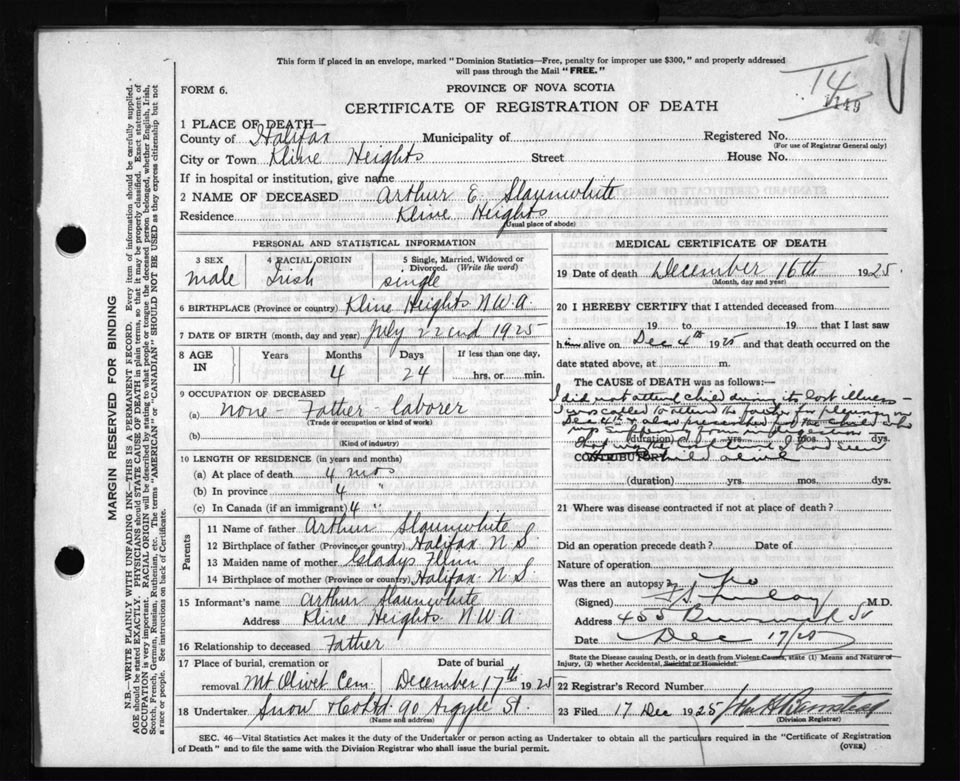 This form if placed in an envelope, marked "Dominion Statistics—Free, penalty for improper use $300," and properly addressed
will pass through the Mail "FREE."
14
149
FORM 6.
PROVINCE OF NOVA SCOTIA
CERTIFICATE OF REGISTRATION OF DEATH
1 PLACE OF DEATH—
County of Halifax Municipality of Registered No.
(For use of Registrar General only)
City or Town Kline Heights Street House No.
If in hospital or institution, give name
2 NAME OF DECEASED Arthur E Slaunwhite
Residence Kline Heights
(Usual place of abode)
PERSONAL AND STATISTICAL INFORMATION
3 SEX 4 RACIAL ORIGIN 5 Single, Married, Widowed or
Divorced. (Write the word)
male Irish single
6 BIRTHPLACE (Province or country) Kline Heights N.W.A.
7 DATE OF BIRTH (month, day and year) July 22nd 1925
8 AGE IN Years Months Days If less than one day,
4 24 hrs. or min.
9 OCCUPATION OF DECEASED
(a) none - Father - laborer
(Trade or occupation or kind of work)
(b)
(Kind of industry)
10 LENGTH OF RESIDENCE (in years and months)
(a) At place of death 4 mos
(b) In province 4 "
(c) In Canada (if an immigrant) 4 "
Parents
11 Name of father Arthur Slaunwhite
12 Birthplace of father (Province or country) Halifax N S
13 Maiden name of mother Gladys
14 Birthplace of mother (Province or country) Halifax N S
15 Informant's name Arthur Slaunwhite
Address Kline Heights N.W.A.
16 Relationship to deceased Father
17 Place of burial, cremation or Date of burial
removal Mt Olivet Cem December 17th 1925
18 Undertaker Snow & Co Ltd 90 Argyle St.
(Name and address)
MEDICAL CERTIFICATE OF DEATH
19 Date of death December 16th 1925.
(Month, day and year)
20 I HEREBY CERTIFY that I attended deceased from
19 to 19 that I last saw
him alive on Dec 4th 1925 and that death occurred on the
date stated above, at m.
The CAUSE of DEATH was as follows:—
I did not attend child during its last illness -
I was called to attend the family for
Dec 4th & also prescribed for the child who
was suffering from
(duration) yrs. mos. dys.
that was the last time I had seen
CONTRIBUTORY child alive
(duration) yrs. mos. dys.
21 Where was disease contracted if not at place of death?
Did an operation precede death? Date of
Nature of operation
Was there an autopsy? No
(Signed) M.D.
Address 455 Brunswick St
Date Dec 17/25
State the Disease causing Death, or in death from Violent Causes, state (1) Means and Nature of
Injury, (2) whether Accidental, Suicidal or Homicidal.
22 Registrar's Record Number
23 Filed 17 Dec 1925 John H
(Division Registrar)
SEC. 46—Vital Statistics Act makes it the duty of the Undertaker or person acting as Undertaker to obtain all the particulars required in the "Certificate of Registration
of Death" and to file the same with the Division Registrar who shall issue the burial permit.
(OVER)
MARGIN RESERVED FOR BINDING
N.B.—WRITE PLAINLY WITH UNFADING INK—THIS IS A PERMANENT RECORD. Every item of information should be carefully supplied.
AGE should be stated EXACTLY. PHYSICIANS should STATE CAUSE OF DEATH in plain terms, so that it may be properly classified. Exact statement of
OCCUPATION is very important. RACIAL ORIGIN will be described by stating to what people or tongue the deceased person belonged, whether English, Irish,
Scotch, French, German, Russian, Ruthenian, etc. The terms "AMERICAN" or "CANADIAN" SHOULD NOT BE USED as they express citizenship but not
a race or people. See instructions on back of Certificate.